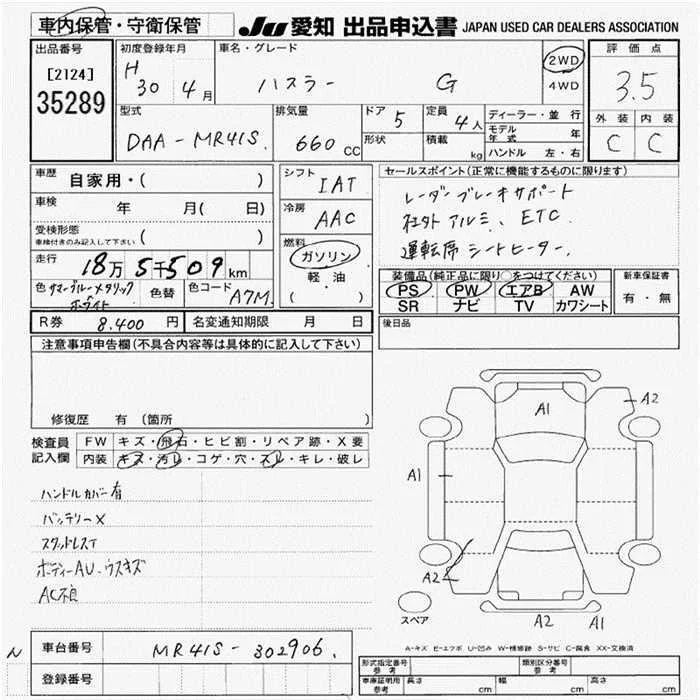 車内保管・守衛保管
JU 愛知 出品申込書 JAPAN USED CAR DEALERS ASSOCIATION
出品番号
[2124]
35289
初度登録年月
H 30 4月
車名・グレード
ハスラー G
2WD
4WD
評価点
3.5
外装 内装
C C
型式
DAA-MR41S
排気量
660 CC
ドア 5
形状
定員 4人
積載 kg
ディーラー・並行
モデル年式 年
ハンドル 左・右
車歴
自家用・( )
車検 年 月( 日)
受検形態
車検付きのみ記入して下さい ( )
走行 18万5千509km
色 サマーブルーメタリック
ホワイト
色替
色コード A7M
シフト
IAT
冷房
AAC
燃料
ガソリン
軽・油
( )
セールスポイント(正常に機能するものに限ります)
レーダーブレーキサポート
社外アルミ、ETC
運転席シートヒーター
装備品(純正品に限り○をつけてください)
PS PW エアB AW
SR ナビ TV カワシート
新車保証書
有・無
R券 8,400 円
名変通知期限 月 日
後日品
注意事項申告欄(不具合内容等は具体的に記入して下さい)
修復歴 有 (箇所 )
検査員記入欄
FW キズ・飛石・ヒビ割・リペア跡・X要
内装 キズ・汚レ・コゲ・穴・スレ・キレ・破レ
ハンドルカバー有
バッテリーX
スタッドレスT
ボディーAU.ウスキズ
AC不良
A1
A2
A1
A2
A2
A1
スペア
A-キズ E-エクボ U-凹み W-補修跡 S-サビ C-腐食 XX-交換済
N
車台番号 MR41S-302906
登録番号
形式指定番号
参考
類別区分番号
参考
車庫証明用
参考
長さ cm
幅 cm
高さ cm